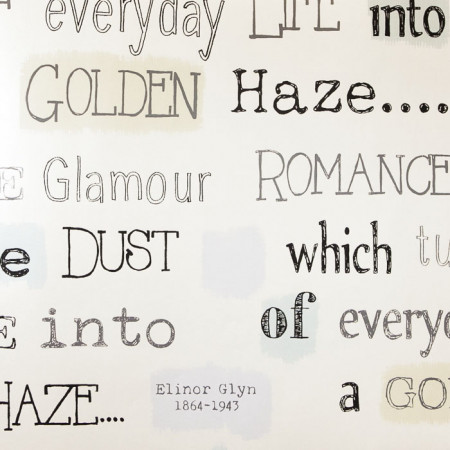 everyday LIFE into
GOLDEN Haze....
E Glamour ROMANCE
e DUST which tu
E into of everyd
HAZE.... Elinor Glyn a GOL
1864-1943